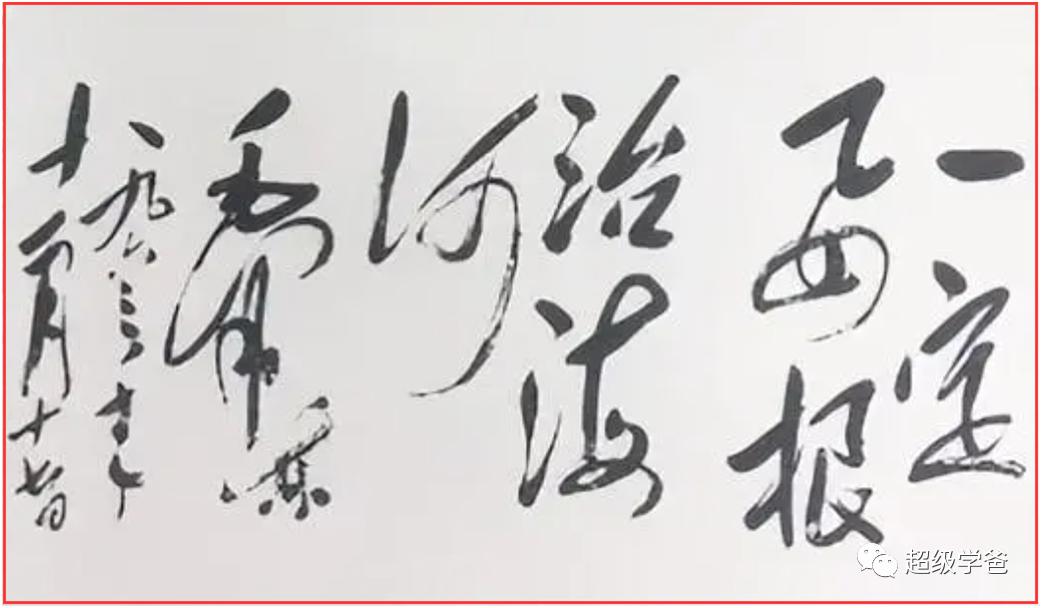 一定
要根
治海
河
毛泽东
一九六三年
十一月十七日
超级学爸